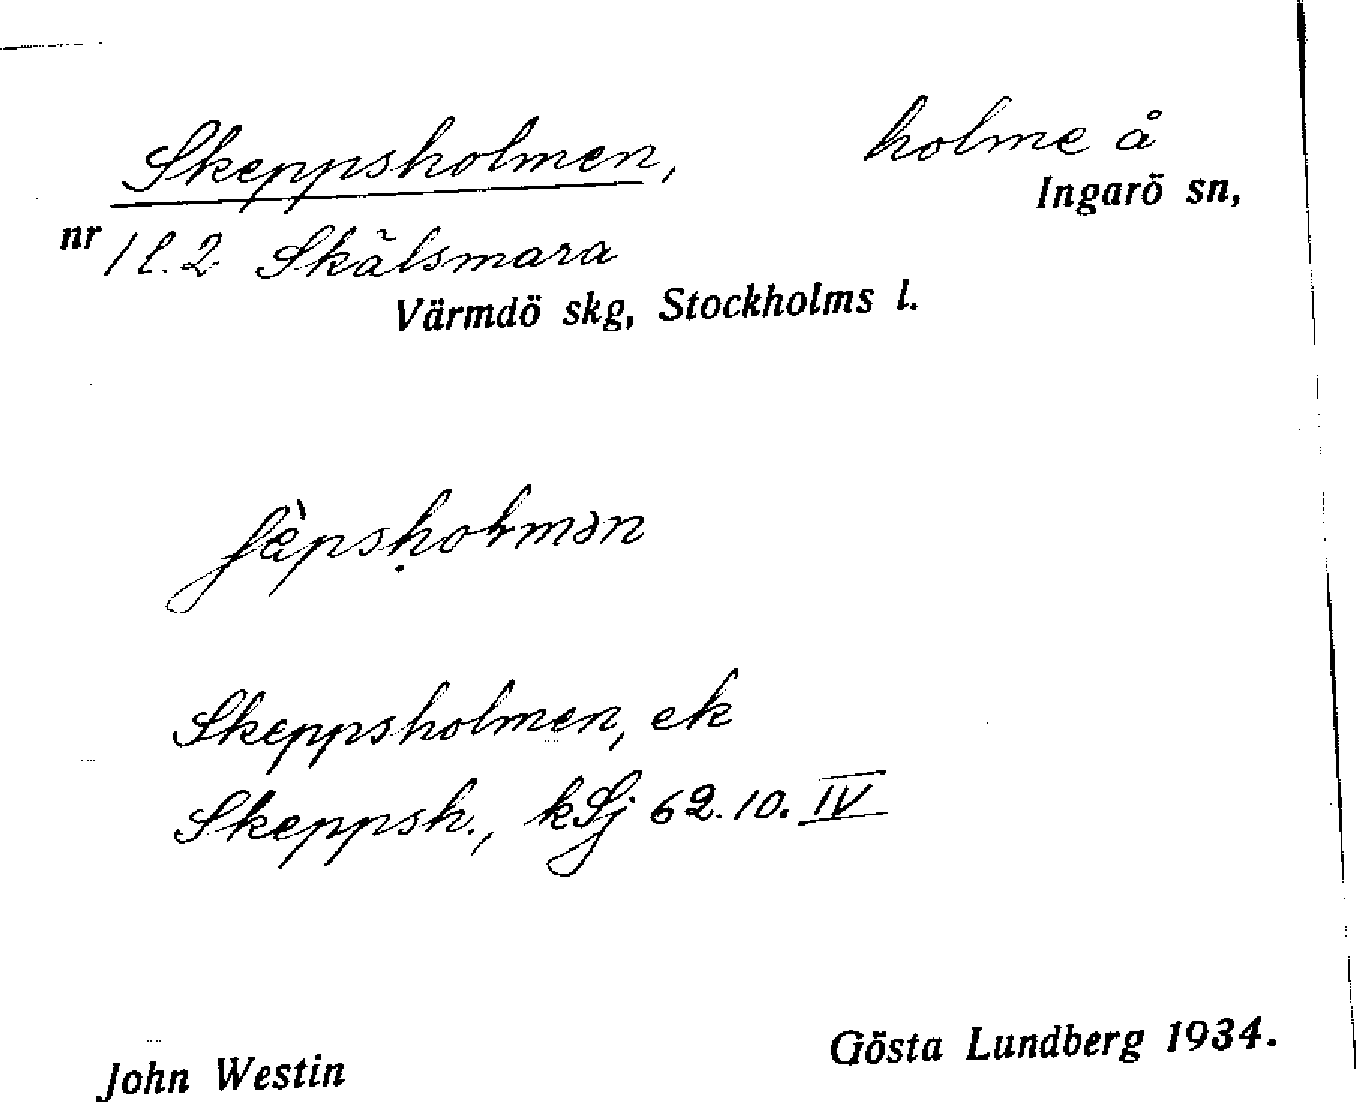 Skeppsholmen, holme å
Ingarö sn,
nr 1 l. 2 Skälsmara
Värmdö skg, Stockholms l.
ʃèpshoɫmən
Skeppsholmen, ek
Skeppsh., kSj 62.10. IV
John Westin
Gösta Lundberg 1934.